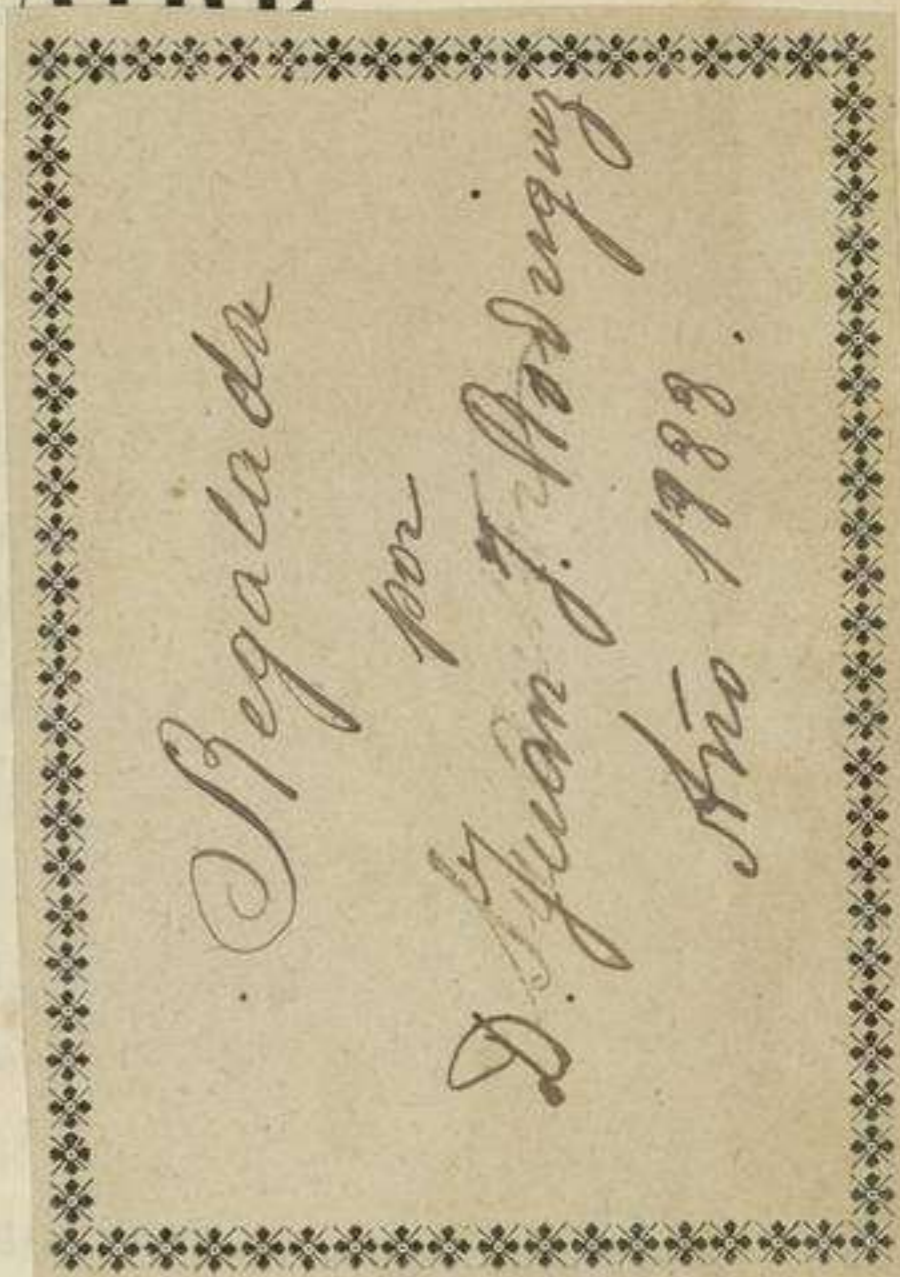 Regalada
por
D. Juan J. Rodriguez
Año 1888.